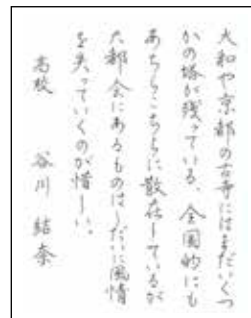 大和や京都の古寺にはまだいくつ
かの塔が残っている、全国的にも
あちらこちらに散在しているが
大都会にあるものはしだいに風情
を失っていくのが惜しい。
高校 谷川結奈